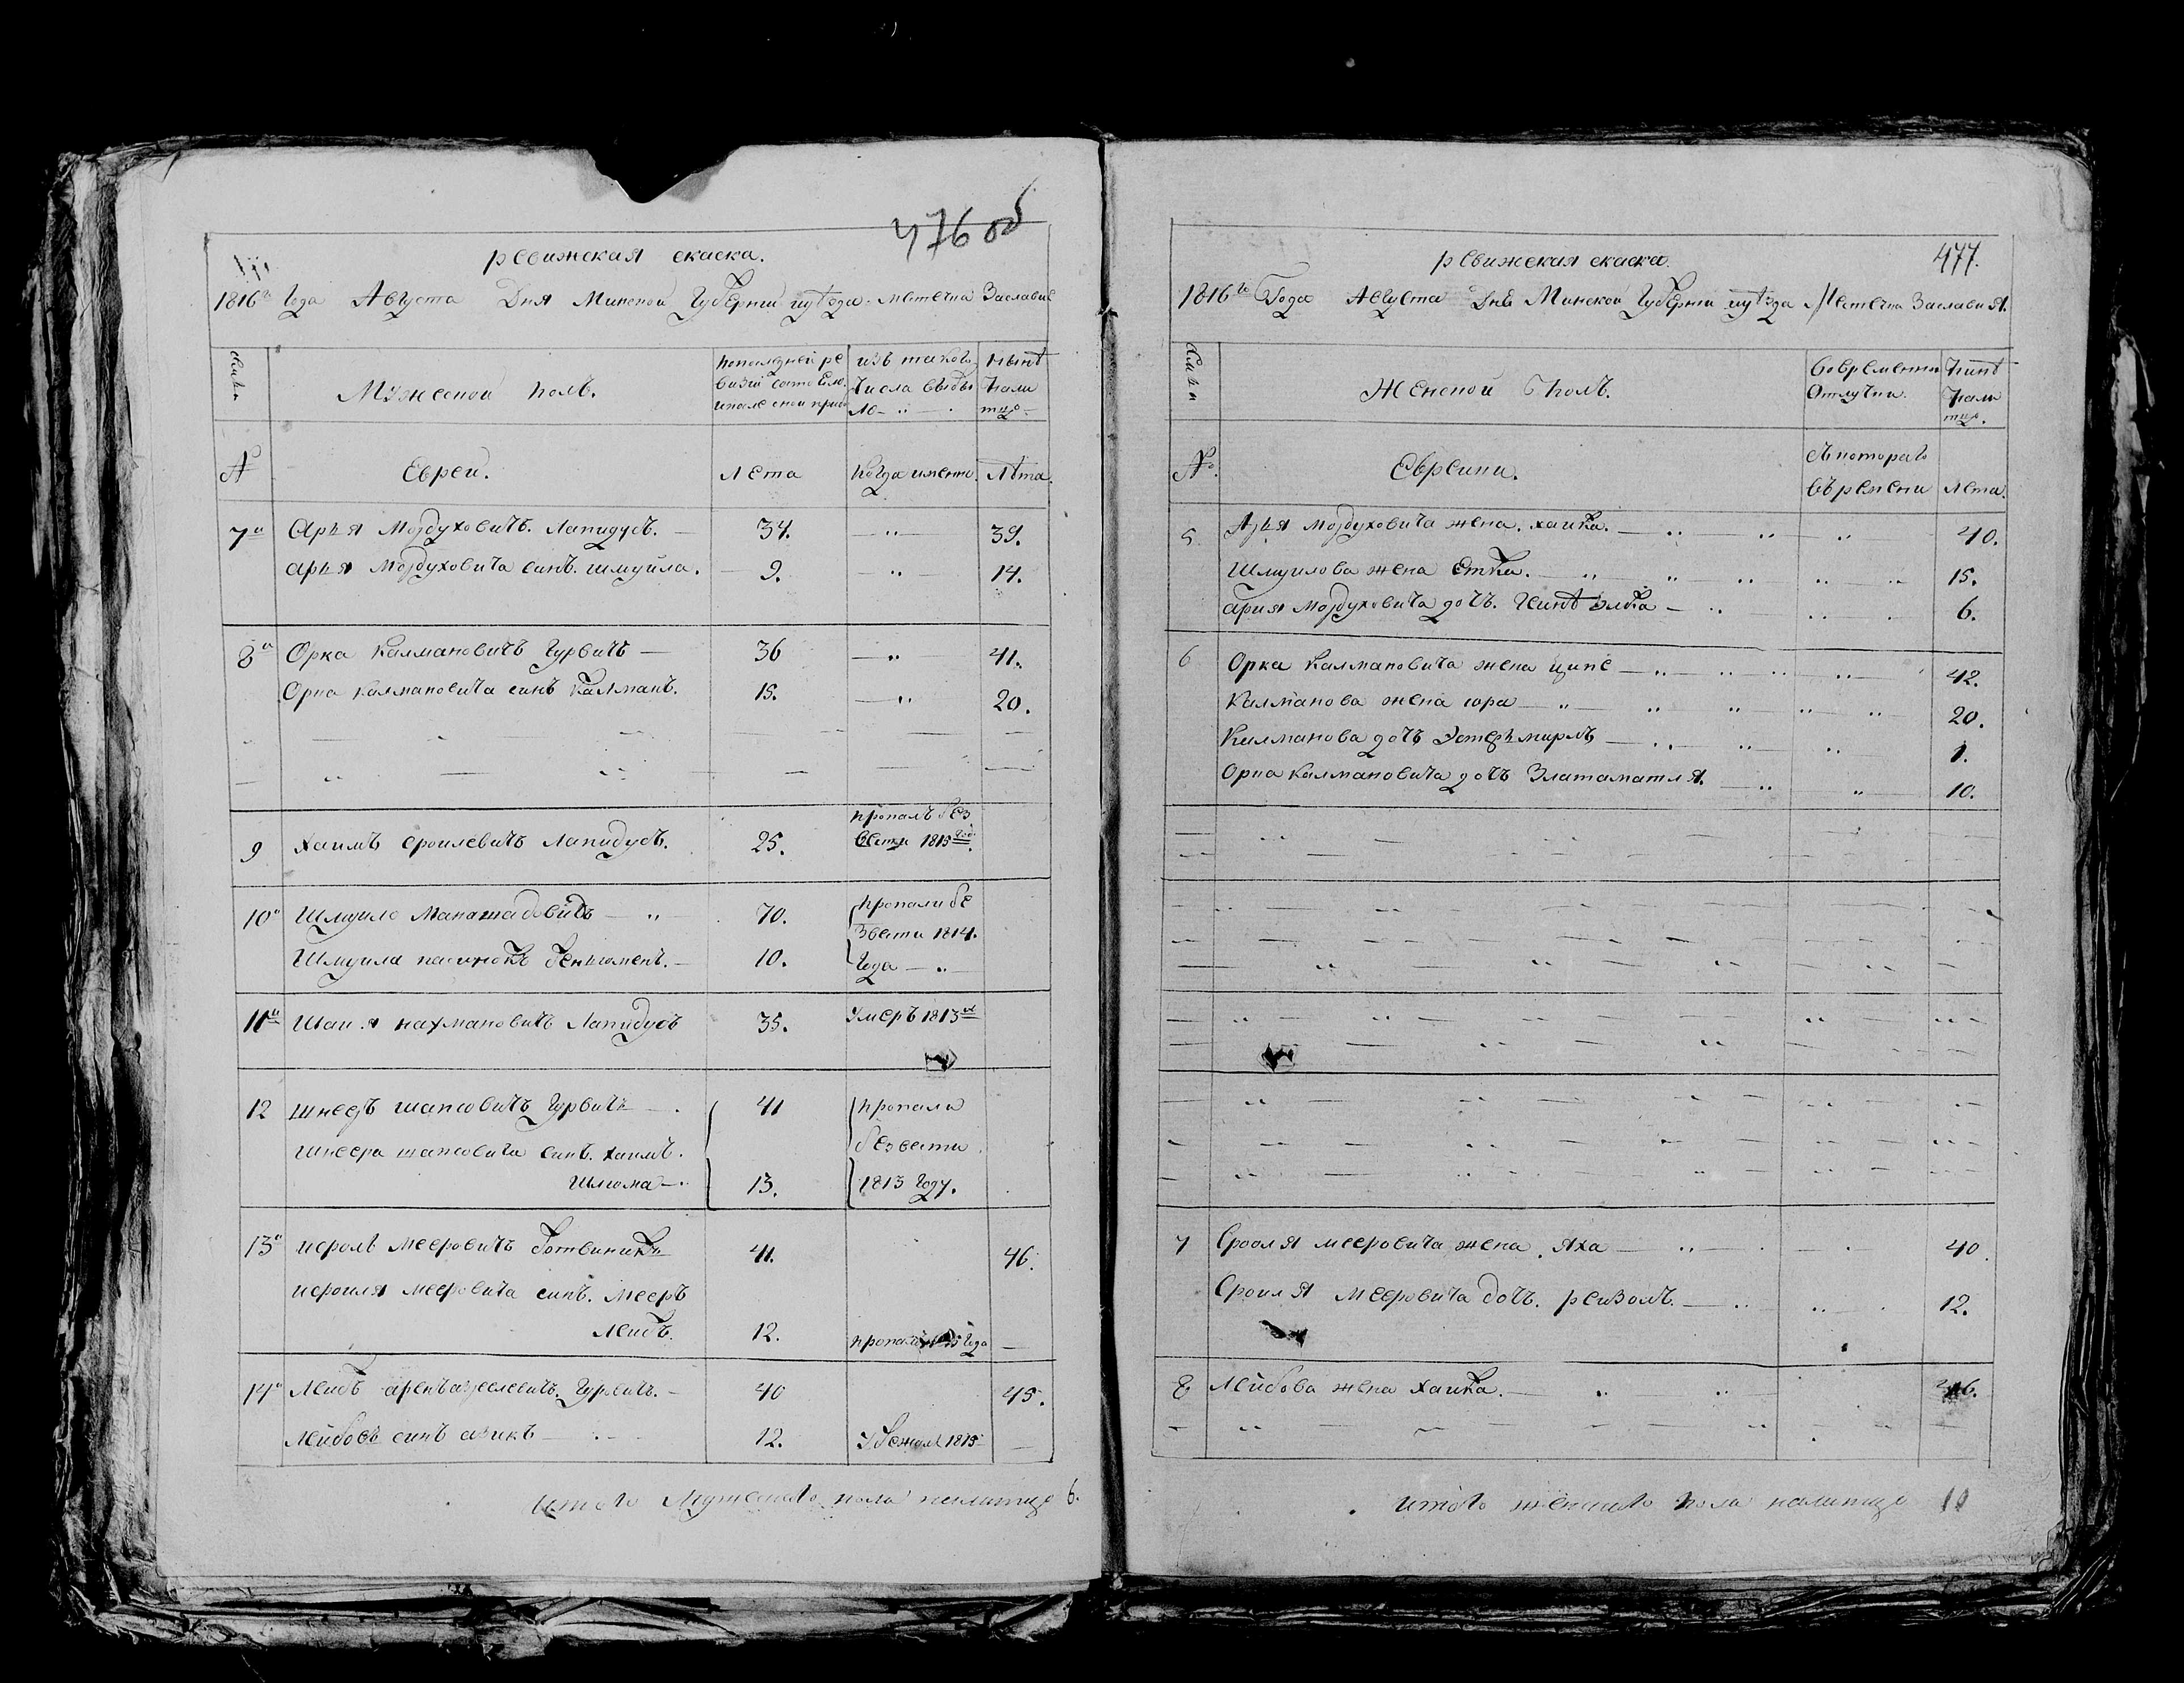 476 об
ревижская скаска.
1816го Года Августа Дня Минской Губернии уѣзда местечка Заславие
Мужеской полъ.
попоследней ре
визии состояло.
изъ таково
числа выбы
ло
нынѣ
нали
тцо
№
Евреи.
Лета
Когда именно.
Лѣта.
7й
Арья Мордуховичъ. Лапидусъ.
34.
39.
арья Мордуховича синъ. шмуйла.
9.
14.
8й
Орка Калмановичъ Гурвичъ
36
41.
Орка Калмановича синъ Калманъ.
15.
20.
9
Хаимъ сроилевичъ Лапидусъ.
25.
пропалъ без
вести 1815 год.
10й
Шмуило Манашадовичъ
70.
пропали бе
Шмуила пасинокъ беньюменъ.
10.
звести 1814.
Года
11й
Шаи.я нахмановичъ Лапидусъ
35.
Умеръ 1813
12
шнеръ шапсовичъ Гурвичъ
41
пропали
шнеера шапсовича синъ. хаимъ.
безвести
Шлиома
13.
1813 Году.
13й
исроль мееровичъ Ботвиникъ
41.
46.
исроиля мееровича синъ. мееръ
Леибъ.
12.
пропалъ Года
14й
Леибъ Гурвичъ.
40
45.
Лейбовъ синъ аизикъ
12.
Збежалъ 1815
итого Мужеского пола налитцо 6.
477.
ревижская скаска.
1816го Года Августа Дня Минской Губернии уѣзда Местечка Заславия.
Женской полъ.
Вовременной
Отлучки.
нинѣ
нали
тцо.
№.
Еврейки.
Скоторого
времени
лета.
5
Арья Мордуховича жена. хаика.
40.
Шмуилова жена Етка.
15.
ария Мордуховича дочъ. Гинѣ элька
6.
6
Орка Калмановича жена ципе
42.
Калманова жена сора
20.
Калманова дочъ Эстеръ мирлъ
1.
Орка Калмановича дочъ Златаматля.
10.
7
Сроля мееровича жена. Яха
40.
Сроиля Мееровича дочъ. реизолъ.
12.
8
Лейбова жена Хаика.
46.
итого женского пола налитцо 10